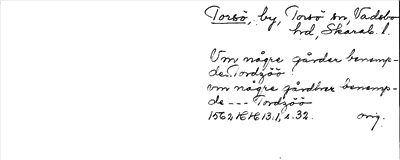 Torsö, by, Torsö sn, Vadsbo
hd, Skarab. l.
Um någre gårder benemp-
de.. Tordzöö
um någre gårdhrer benemp-
de --- Tordzöö
1562 KHH 13:1, s. 32. orig.